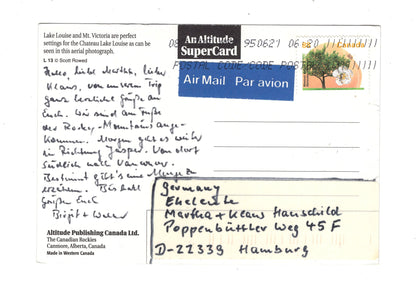 Lake Louise and Mt. Victoria are perfect
settings for the Chateau Lake Louise as can be
seen in this aerial photograph.
L 13 © Scott Rowed
An Altitude
SuperCard
950621 06 20
POSTAL CODE CODE POSTAL
Air Mail Par avion
Hallo, liebe Martha, lieber
Klaus, von unserem Trip
ganz herzliche Grüße an
Euch. Wir sind am Fuße
der Rocky-Mountains ange-
kommen. Morgen geht es weiter
in Richtung Jasper. Von dort
südlich nach Vancouver.
Bestimmt gibt's eine Menge zu
erzählen. Bis bald
Grüßen Euch
Birgit +
Germany
Eheleute
Martha + Klaus Hanschild
Poppenbüttler Weg 45 F
D-22339 Hamburg
Altitude Publishing Canada Ltd.
The Canadian Rockies
Canmore, Alberta, Canada
Made in Western Canada